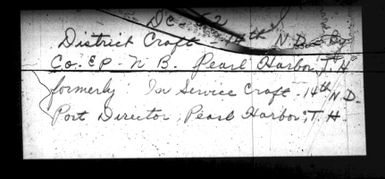 Dec 42
District Craft - 14th N.D.
Co. E P - N B. Pearl Harbor, T.H.
formerly: In Service Craft - 14th N.D.
Port Director, Pearl Harbor, T.H.